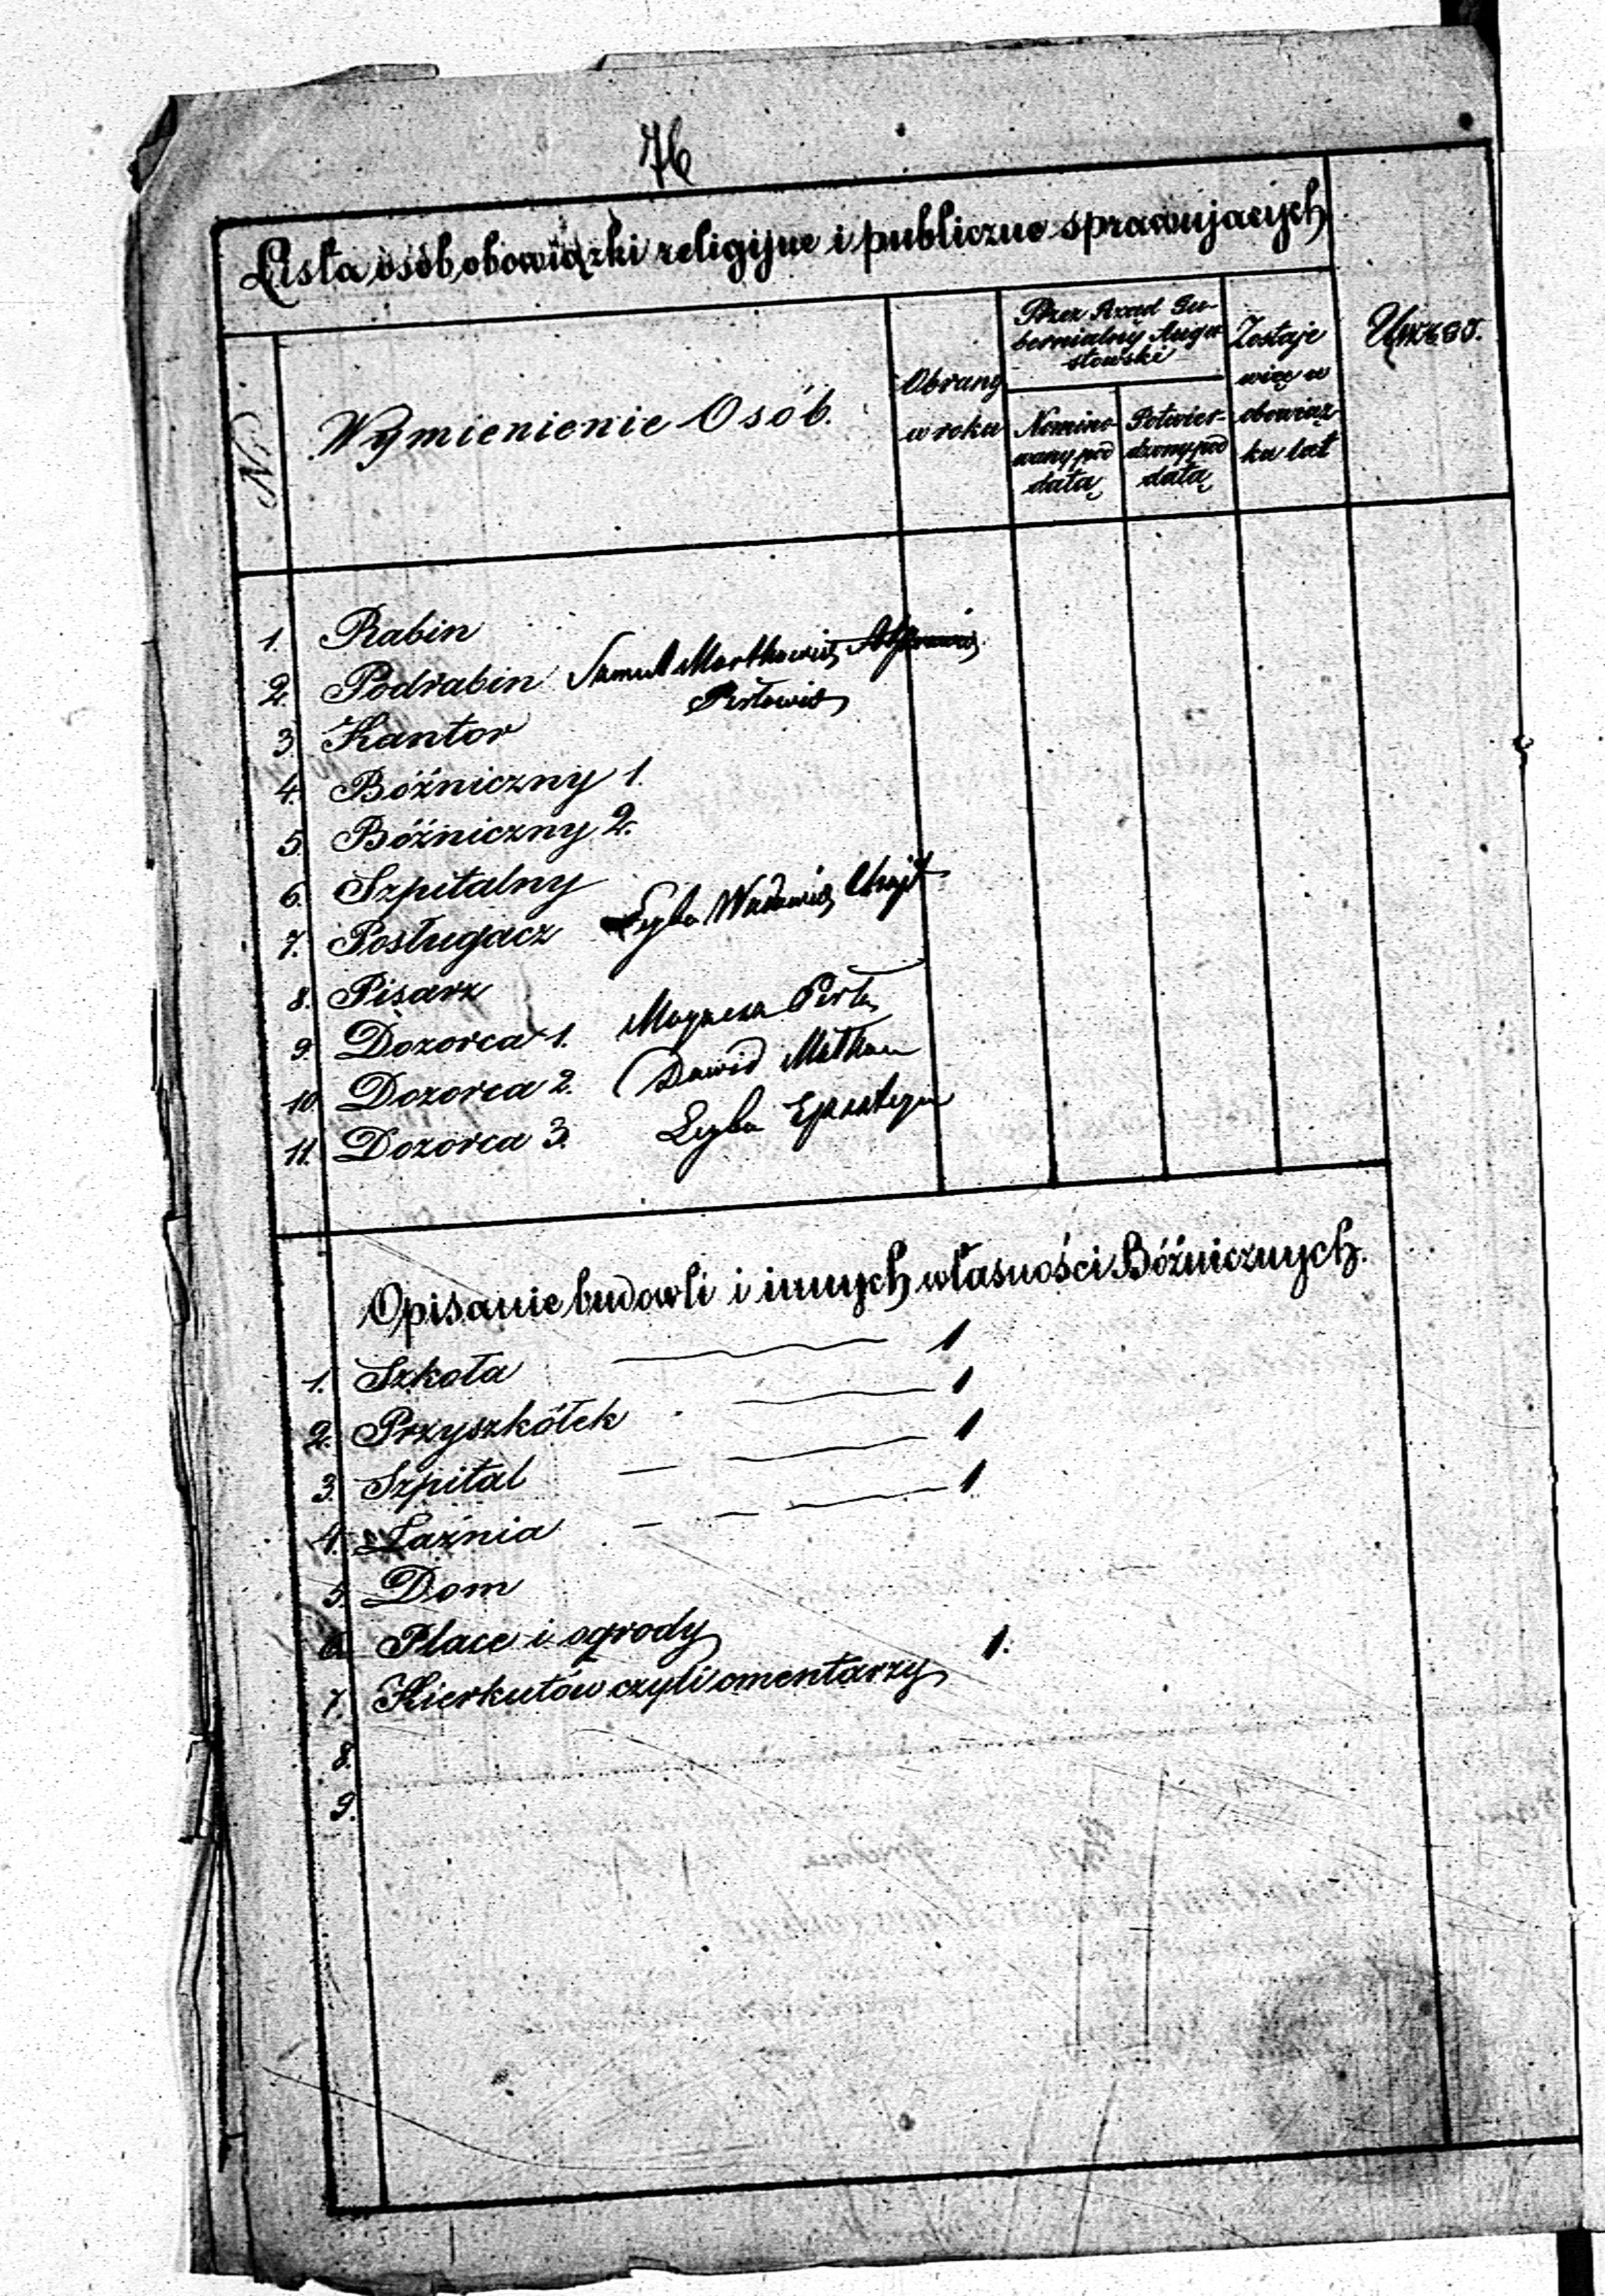 76
Lista osób obowiązki religijne i publiczne sprawujących
N.
Wymienienie Osób.
Obrany
w roku
Przez Rząd Gu-
bernialny Augu-
stowski
Nomino-
wany pod
datą
Potwier-
dzony pod
datą
Zostaje
więc w
obowiąz-
ku lat
1. Rabin
2. Podrabin Samuel Mortkowicz
Perłowicz
3. Kantor
4. Bóźniczny 1.
5. Bóźniczny 2.
6. Szpitalny
7. Posługacz Leyba
8. Pisarz
9. Dozorca 1. Perl
10. Dozorca 2. Dawid
11. Dozorca 3. Leyba
Opisanie budowli i innych własności Bóźnicznych.
1. Szkoła 1
2. Przyszkółek 1
3. Szpital 1
4. Łaźnia 1
5. Dom
6. Place i ogrody
7. Kierkutów czyli omentarzy 1.
8.
9.